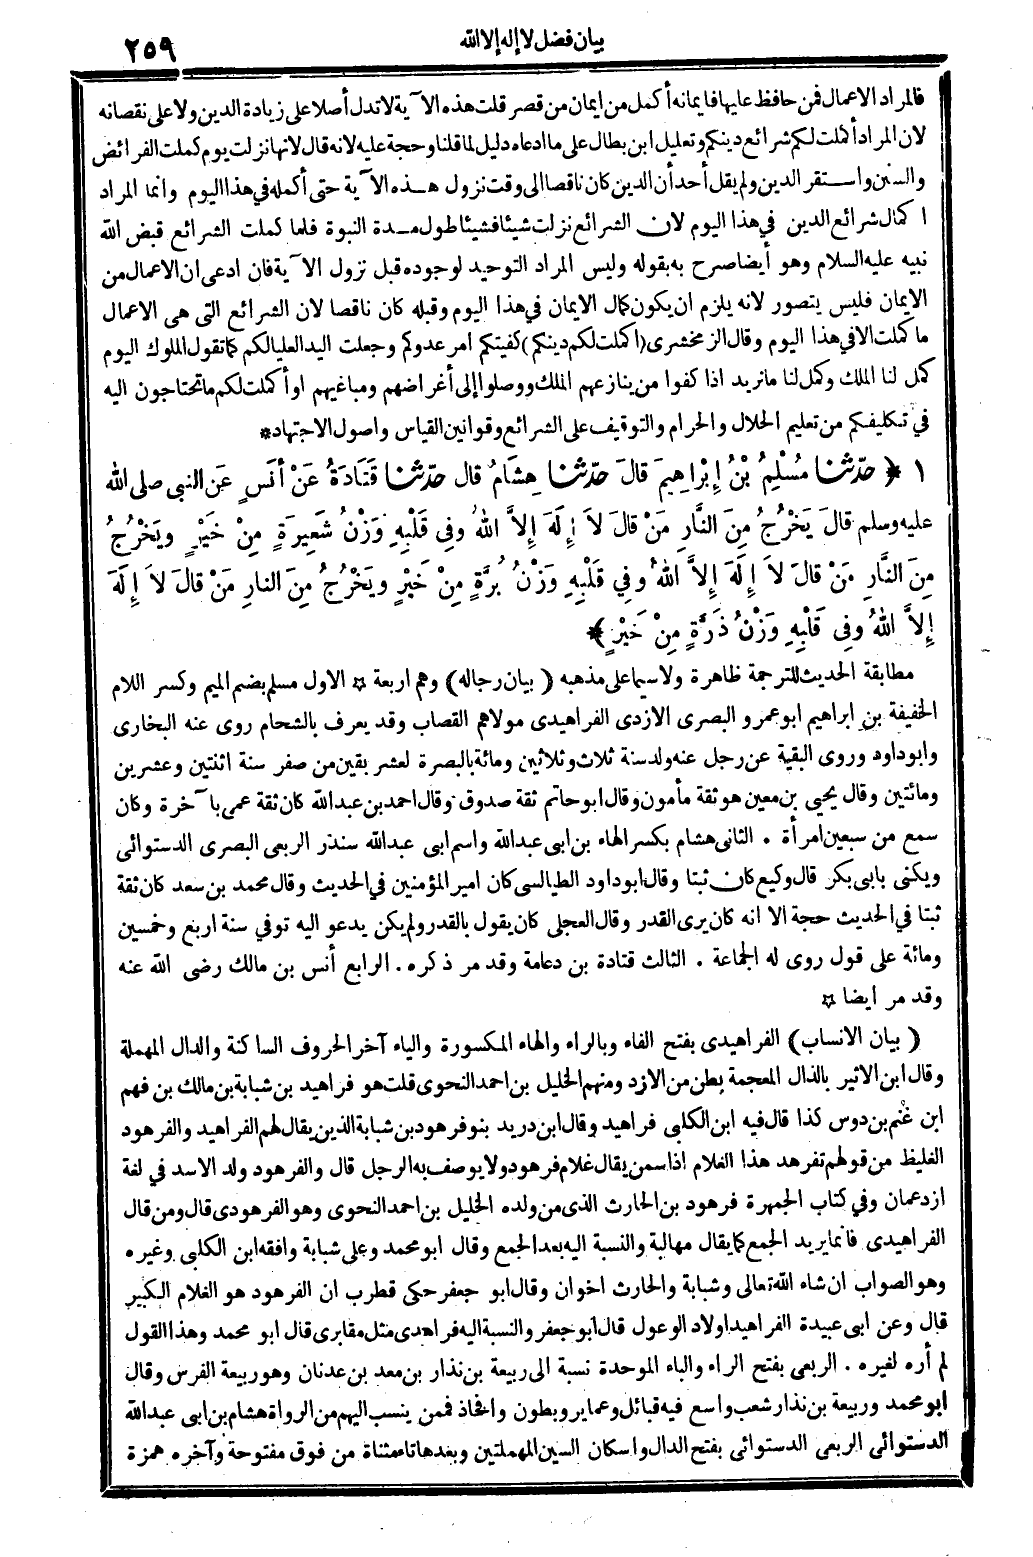 بيان فضل لا إله إلا الله
٢٥٩
فالمراد الاعمال فمن حافظ عليها فايمانه أكمل من ايمان من قصر قلت هذه الآية لا تدل أصلا على زيادة الدين ولا على نقصانه
لان المراد أكملت لكم شرائع دينكم وتعليل ابن بطال على ما ادعاه دليل لما قلنا وحجة عليه لانه قال لانها نزلت يوم كملت الفرائض
والسنن واستقر الدين ولم يقل أحد أن الدين كان ناقصا الى وقت نزول هذه الآية حتى أكمله في هذا اليوم وانما المراد
اكمال شرائع الدين في هذا اليوم لان الشرائع نزلت شيئا فشيئا طول مدة النبوة فلما كملت الشرائع قبض الله
نبيه عليه السلام وهو أيضا صرح به بقوله وليس المراد التوحيد لوجوده قبل نزول الآية فان ادعى ان الاعمال من
الايمان فليس يتصور لانه يلزم ان يكون كمال الايمان في هذا اليوم وقبله كان ناقصا لان الشرائع التى هى الاعمال
ما كملت الا في هذا اليوم وقال الزمخشرى (اكملت لكم دينكم) كفيتكم امر عدوكم وجعلت اليد العليا لكم كما تقول الملوك اليوم
كمل لنا الملك وكمل لنا ما نريد اذا كفوا من ينازعهم الملك ووصلوا إلى أغراضهم ومباغيهم او أكملت لكم ما تحتاجون اليه
في تكليفكم من تعليم الحلال والحرام والتوقيف على الشرائع وقوانين القياس واصول الاجتهاد *
١ ﴿ حَدّثنا مُسْلِمُ بْنُ إِبْرَاهِيمَ قالَ حَدّثنا هِشَامٌ قال حَدّثنا قَتَادَةُ عَنْ أنَسٍ عَنِ النبى صلى الله
عليه وسلم قالَ يَخْرُجُ مِنَ النَّارِ مَنْ قالَ لاَ إِلَهَ إِلاَّ اللهُ وفِى قَلْبِهِ وَزْنُ شَعِيرَةٍ مِنْ خَيْرٍ ويَخْرُجُ
مِنَ النَّارِ مَنْ قالَ لاَ إِلَهَ إِلاَّ اللهُ وفِي قَلْبِهِ وَزْنُ بُرَّةٍ مِنْ خَيْرٍ ويَخْرُجُ مِنَ النارِ مَنْ قَالَ لاَ إِلَهَ
إِلاَّ اللهُ وفِى قَلْبِهِ وَزْنُ ذَرَّةٍ مِنْ خَيْرٍ ﴾
مطابقة الحديث للترجمة ظاهرة ولا سيما على مذهبه (بيان رجاله) وهم اربعة * الاول مسلم بضم الميم وكسر اللام
الخفيفة بن ابراهيم ابو عمرو البصرى الازدى الفراهيدى مولاهم القصاب وقد يعرف بالشحام روى عنه البخارى
وابو داود وروى البقية عن رجل عنه ولد سنة ثلاث وثلاثين ومائة بالبصرة لعشر بقين من صفر سنة اثنتين وعشرين
ومائتين وقال يحيى بن معين هو ثقة مأمون وقال ابو حاتم ثقة صدوق وقال احمد بن عبد الله كان ثقة عمى بآخرة وكان
سمع من سبعين امرأة . الثانى هشام بكسر الهاء بن ابى عبد الله واسم ابى عبد الله سنذر الربعى البصرى الدستوائى
ويكنى بابى بكر قال وكيع كان ثبتا وقال ابو داود الطيالسى كان امير المؤمنين في الحديث وقال محمد بن سعد كان ثقة
ثبتا في الحديث حجة الا انه كان يرى القدر وقال العجلى كان يقول بالقدر ولم يكن يدعو اليه توفي سنة اربع وخمسين
ومائة على قول روى له الجماعة . الثالث قتادة بن دعامة وقد مر ذكره . الرابع أنس بن مالك رضى الله عنه
وقد مر ايضا *
(بيان الانساب) الفراهيدى بفتح الفاء وبالراء والهاء المكسورة والياء آخر الحروف الساكنة والدال المهملة
وقال ابن الاثير بالذال المعجمة بطن من الازد ومنهم الخليل بن احمد النحوى قلت هو فراهيد بن شبابة بن مالك بن فهم
ابن غنم بن دوس كذا قال فيه ابن الكلبى فراهيد وقال ابن دريد بنو فرهود بن شبابة الذين يقال لهم الفراهيد والفرهود
الغليظ من قولهم تفرهد هذا الغلام اذا سمن يقال غلام فرهود ولا يوصف به الرجل قال والفرهود ولد الاسد في لغة
ازد عمان وفي كتاب الجمهرة فرهود بن الحارث الذى من ولده الخليل بن احمد النحوى وهو الفرهودى قال ومن قال
الفراهيدى فانما يريد الجمع كما يقال مهالبة والنسبة اليه بعد الجمع وقال ابو محمد وعلى شبابة وافقه ابن الكلبى وغيره
وهو الصواب ان شاء الله تعالى وشبابة والحارث اخوان وقال ابو جعفر حكى قطرب ان الفرهود هو الغلام الكبير
قال وعن ابى عبيدة الفراهيد اولاد الوعول قال ابو جعفر والنسبة اليه فراهدى مثل مقابرى قال ابو محمد وهذا القول
لم أره لغيره . الربعى بفتح الراء والباء الموحدة نسبة الى ربيعة بن نذار بن معد بن عدنان وهو ربيعة الفرس وقال
ابو محمد وربيعة بن نذار شعب واسع فيه قبائل وعماير وبطون وافخاذ فمن ينسب اليهم من الرواة هشام بن ابى عبد الله
الدستوائى الربعى الدستوائى بفتح الدال واسكان السين المهملتين وبعدها تاء مثناة من فوق مفتوحة وآخره همزة